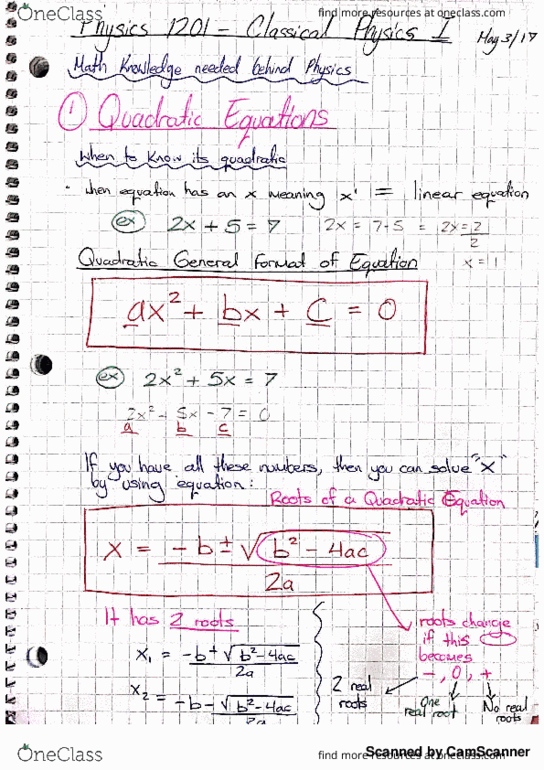 OneClass
find more resources at oneclass.com
Physics 1201 - Classical Physics I
May 3/17
Math Knowledge needed behind Physics
① Quadratic Equations
When to know its quadratic
· when equation has an x meaning x¹ = linear equation
ex 2x + 5 = 7 2x = 7-5 = 2x = 2
2
x = 1
Quadratic General Format of Equation
ax² + bx + c = 0
ex 2x² + 5x = 7
2x² - 5x - 7 = 0
a b c
If you have all these numbers, then you can solve "x"
by using equation:
Roots of a Quadratic Equation
x = -b ± √b² - 4ac
2a
It has 2 roots
x₁ = -b + √b² - 4ac
2a
x₂ = -b - √b² - 4ac
2a
roots change
if this
becomes
-, 0, +
2 real
roots
One
real root
No real
roots
OneClass
find more resources at oneclass.com
Scanned by CamScanner